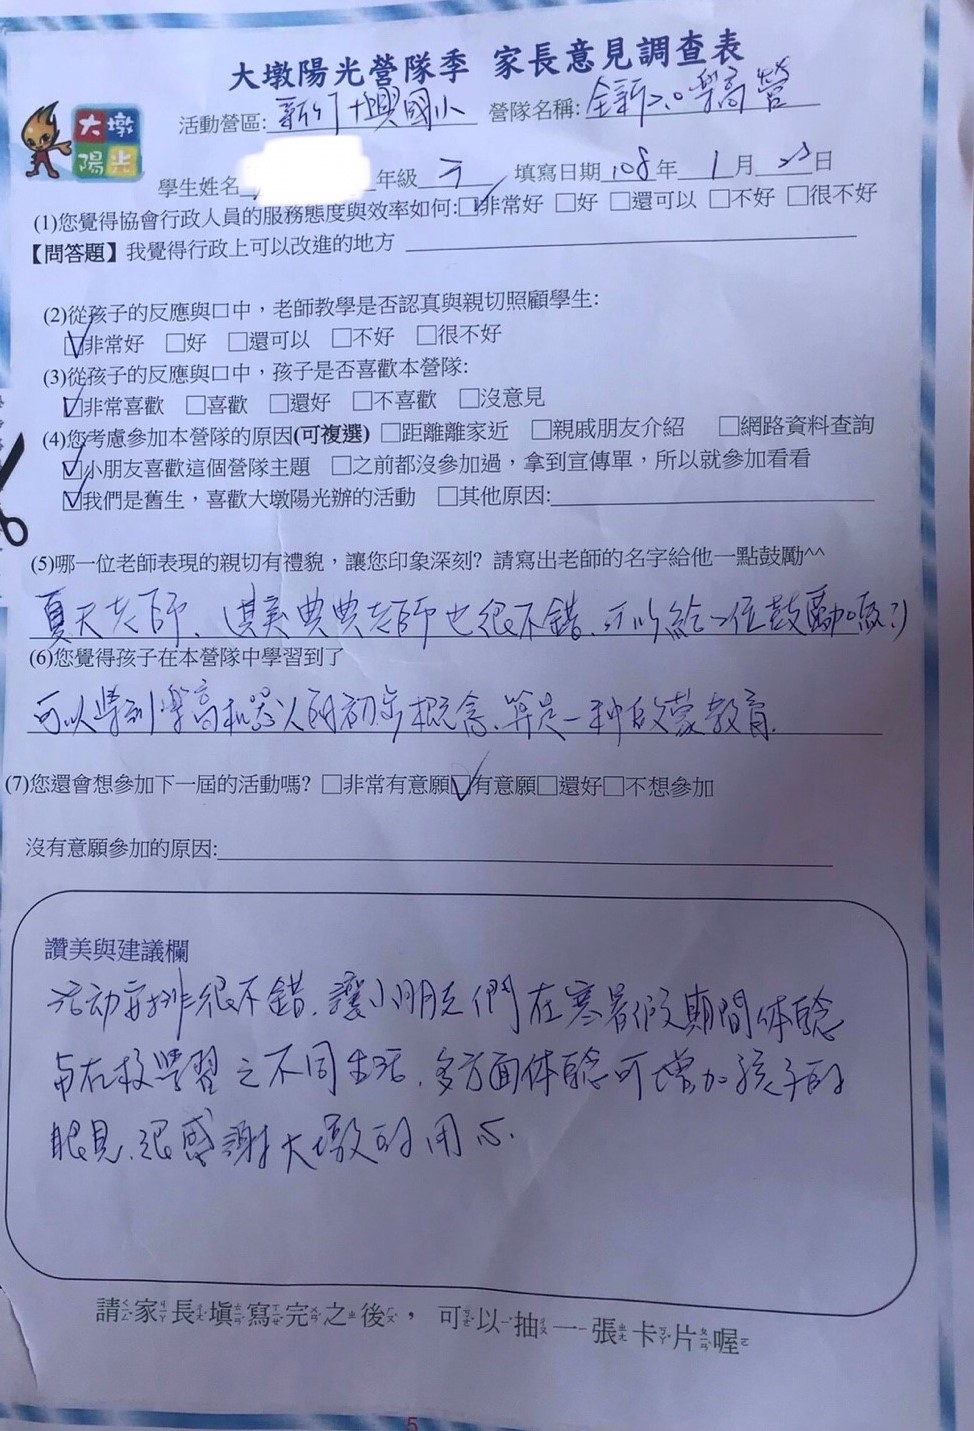 大墩陽光營隊季 家長意見調查表
大墩陽光
活動營區:新竹 十興國小 營隊名稱:全新2.0樂高營
學生姓名 年級 填寫日期108年1月23日
(1)您覺得協會行政人員的服務態度與效率如何:☑非常好 □好 □還可以 □不好 □很不好
【問答題】我覺得行政上可以改進的地方
(2)從孩子的反應與口中，老師教學是否認真與親切照顧學生:
☑非常好 □好 □還可以 □不好 □很不好
(3)從孩子的反應與口中，孩子是否喜歡本營隊:
☑非常喜歡 □喜歡 □還好 □不喜歡 □沒意見
(4)您考慮參加本營隊的原因(可複選) □距離離家近 □親戚朋友介紹 □網路資料查詢
☑小朋友喜歡這個營隊主題 □之前都沒參加過，拿到宣傳單，所以就參加看看
☑我們是舊生，喜歡大墩陽光辦的活動 □其他原因:
(5)哪一位老師表現的親切有禮貌，讓您印象深刻? 請寫出老師的名字給他一點鼓勵^^
夏天老師、其實典典老師也很不錯、可以給2位鼓勵嗎?)
(6)您覺得孩子在本營隊中學習到了
可以學到樂高機器人的初步概念、算是一種啟蒙教育.
(7)您還會想參加下一屆的活動嗎? □非常有意願☑有意願□還好□不想參加
沒有意願參加的原因:
讚美與建議欄
活动安排很不錯.讓小朋友們在寒暑假期間体驗
与在校學習之不同生活.多方面体驗可增加孩子的
眼見.很感謝大墩的用心.
請家長填寫完之後，可以抽一張卡片喔
5